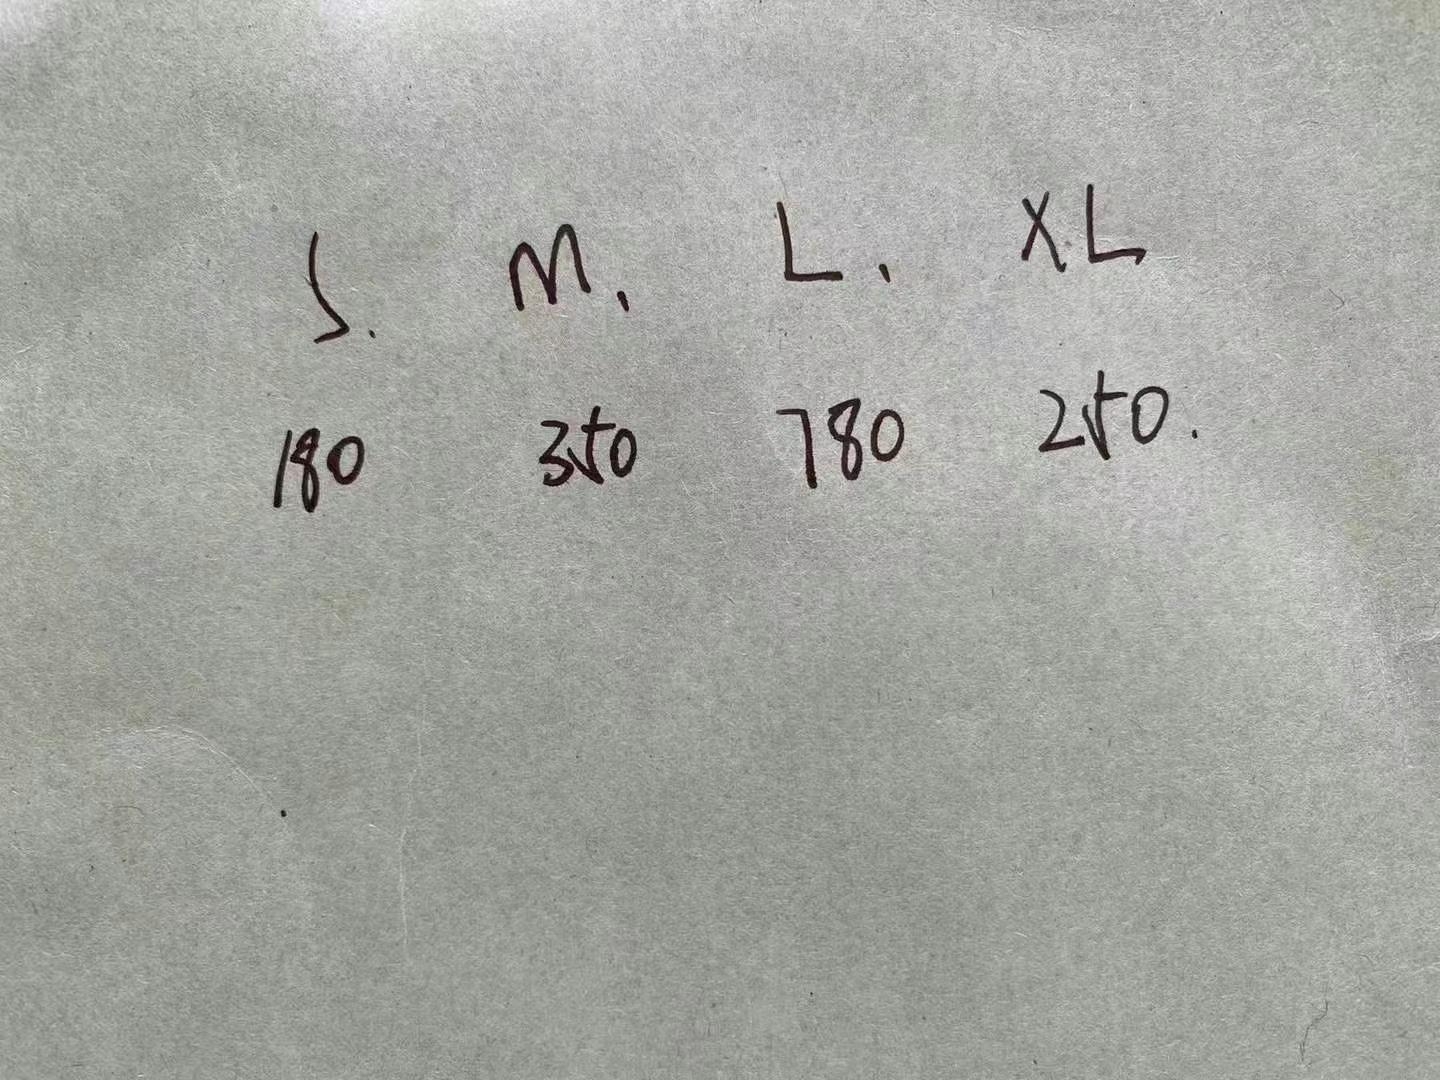 S. M. L. X.L
180 350 780 250.